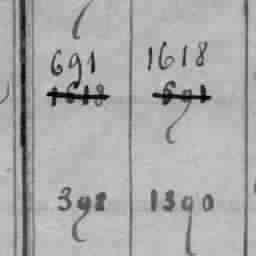 691 1618
1618 691
398 1390